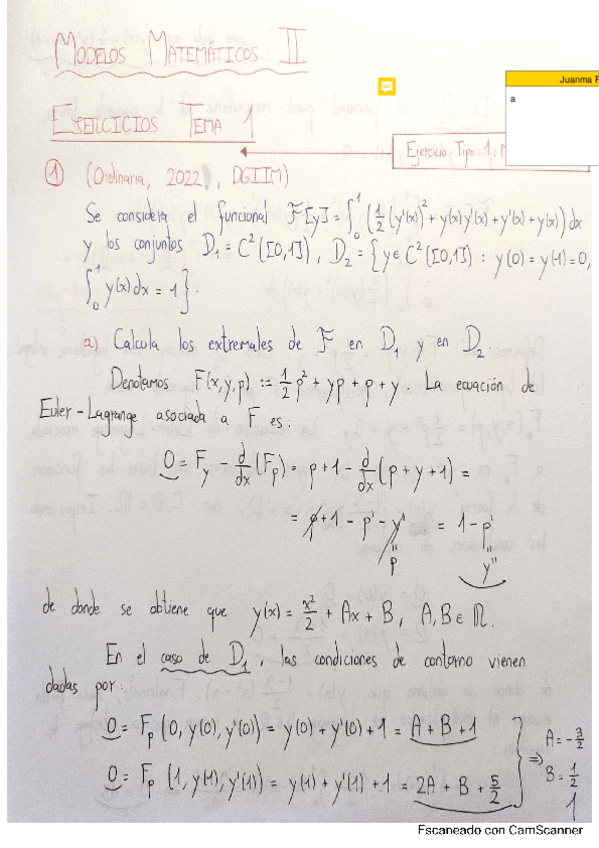 MODELOS MATEMÁTICOS II
Juanma
a
EJERCICIOS TEMA 1
Ejercicio Tipo 1:
① (Ordinaria, 2022, DGIIM)
Se considera el funcional F[y] = ∫₀¹ (½(y'(x))² + y(x)y'(x) + y'(x) + y(x)) dx
y los conjuntos D₁ = C²([0,1]), D₂ = {y ∈ C²([0,1]) : y(0) = y(1) = 0,
∫₀¹ y(x)dx = 1}.
a) Calcula los extremales de F en D₁ y en D₂.
Denotamos F(x,y,p) := ½p² + yp + p + y. La ecuación de
Euler-Lagrange asociada a F es:
0 = F_y - d/dx (F_p) = p + 1 - d/dx (p + y + 1) =
= p + 1 - p' - y' = 1 - p'
" p
" y''
de donde se obtiene que y(x) = x²/2 + Ax + B, A, B ∈ ℝ.
En el caso de D₁, las condiciones de contorno vienen
dadas por:
0 = F_p (0, y(0), y'(0)) = y(0) + y'(0) + 1 = A + B + 1
0 = F_p (1, y(1), y'(1)) = y(1) + y'(1) + 1 = 2A + B + 5/2
⇒ A = -3/2
B = 1/2
1
Escaneado con CamScanner